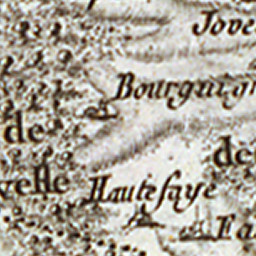 Jove
Bourguign
de
de
velle
Hautefaye
Fa